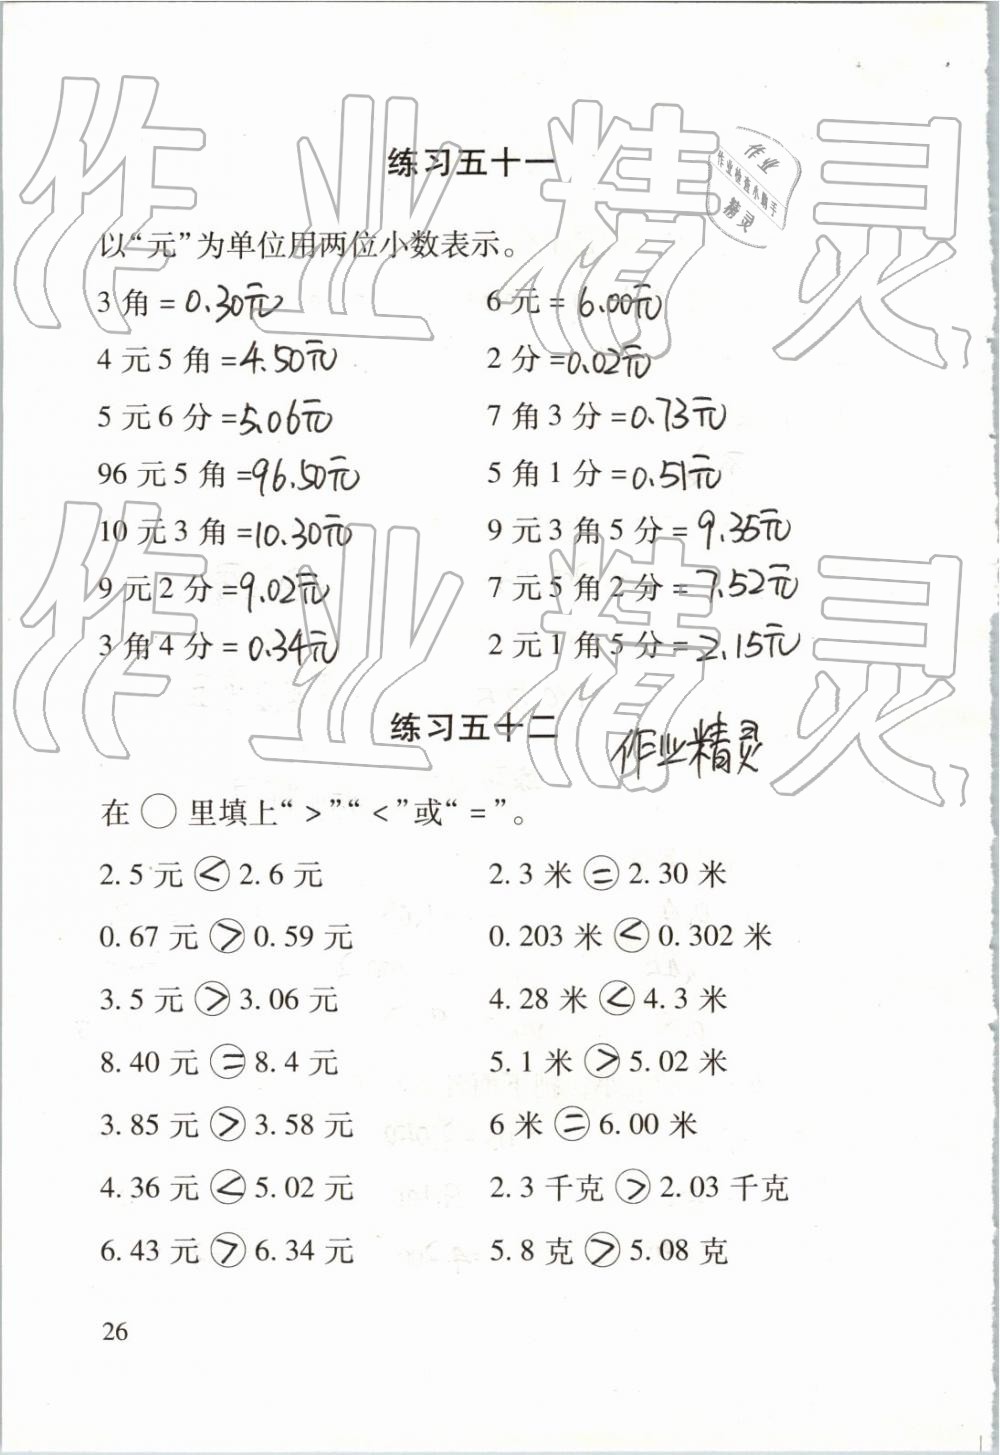 作业精灵
作业
作业检查小助手
精灵
练习五十一
以“元”为单位用两位小数表示。
3角=0.30元 6元=6.00元
4元5角=4.50元 2分=0.02元
5元6分=5.06元 7角3分=0.73元
96元5角=96.50元 5角1分=0.51元
10元3角=10.30元 9元3角5分=9.35元
9元2分=9.02元 7元5角2分=7.52元
3角4分=0.34元 2元1角5分=2.15元
作业精灵
练习五十二
作业精灵
在○里填上“>”“<”或“=”。
2.5元<2.6元 2.3米=2.30米
0.67元>0.59元 0.203米<0.302米
3.5元>3.06元 4.28米<4.3米
8.40元=8.4元 5.1米>5.02米
3.85元>3.58元 6米=6.00米
4.36元<5.02元 2.3千克>2.03千克
6.43元>6.34元 5.8克>5.08克
26